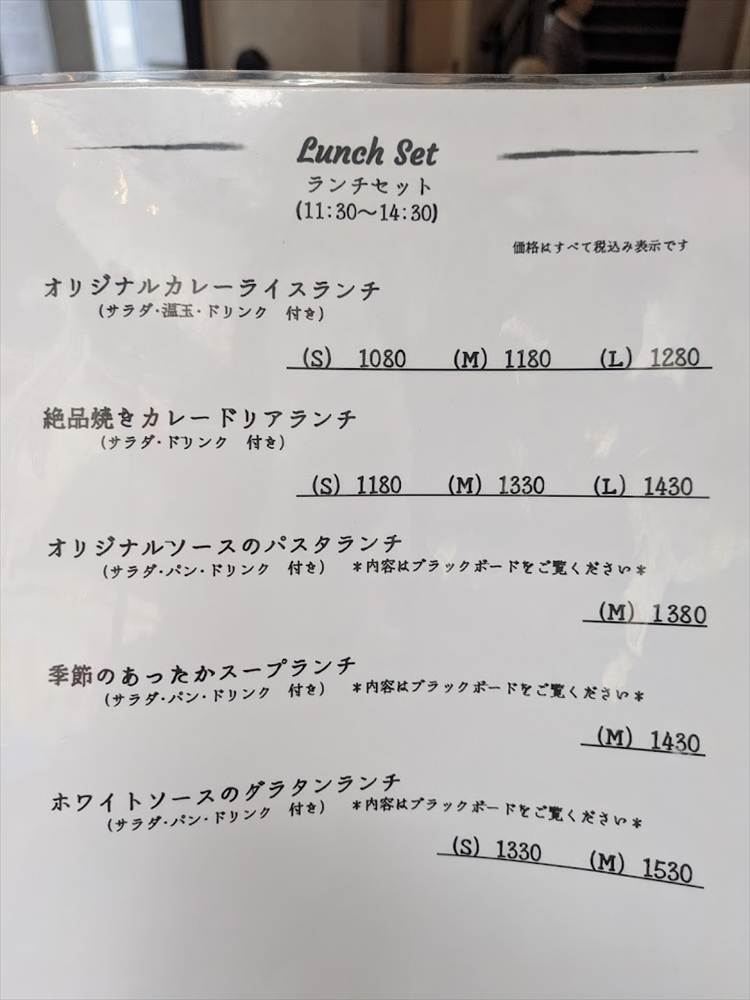 Lunch Set
ランチセット
(11:30〜14:30)
価格はすべて税込み表示です
オリジナルカレーライスランチ
(サラダ・温玉・ドリンク 付き)
(S) 1080 (M) 1180 (L) 1280
絶品焼きカレードリアランチ
(サラダ・ドリンク 付き)
(S) 1180 (M) 1330 (L) 1430
オリジナルソースのパスタランチ
(サラダ・パン・ドリンク 付き) *内容はブラックボードをご覧ください*
(M) 1380
季節のあったかスープランチ
(サラダ・パン・ドリンク 付き) *内容はブラックボードをご覧ください*
(M) 1430
ホワイトソースのグラタンランチ
(サラダ・パン・ドリンク 付き) *内容はブラックボードをご覧ください*
(S) 1330 (M) 1530